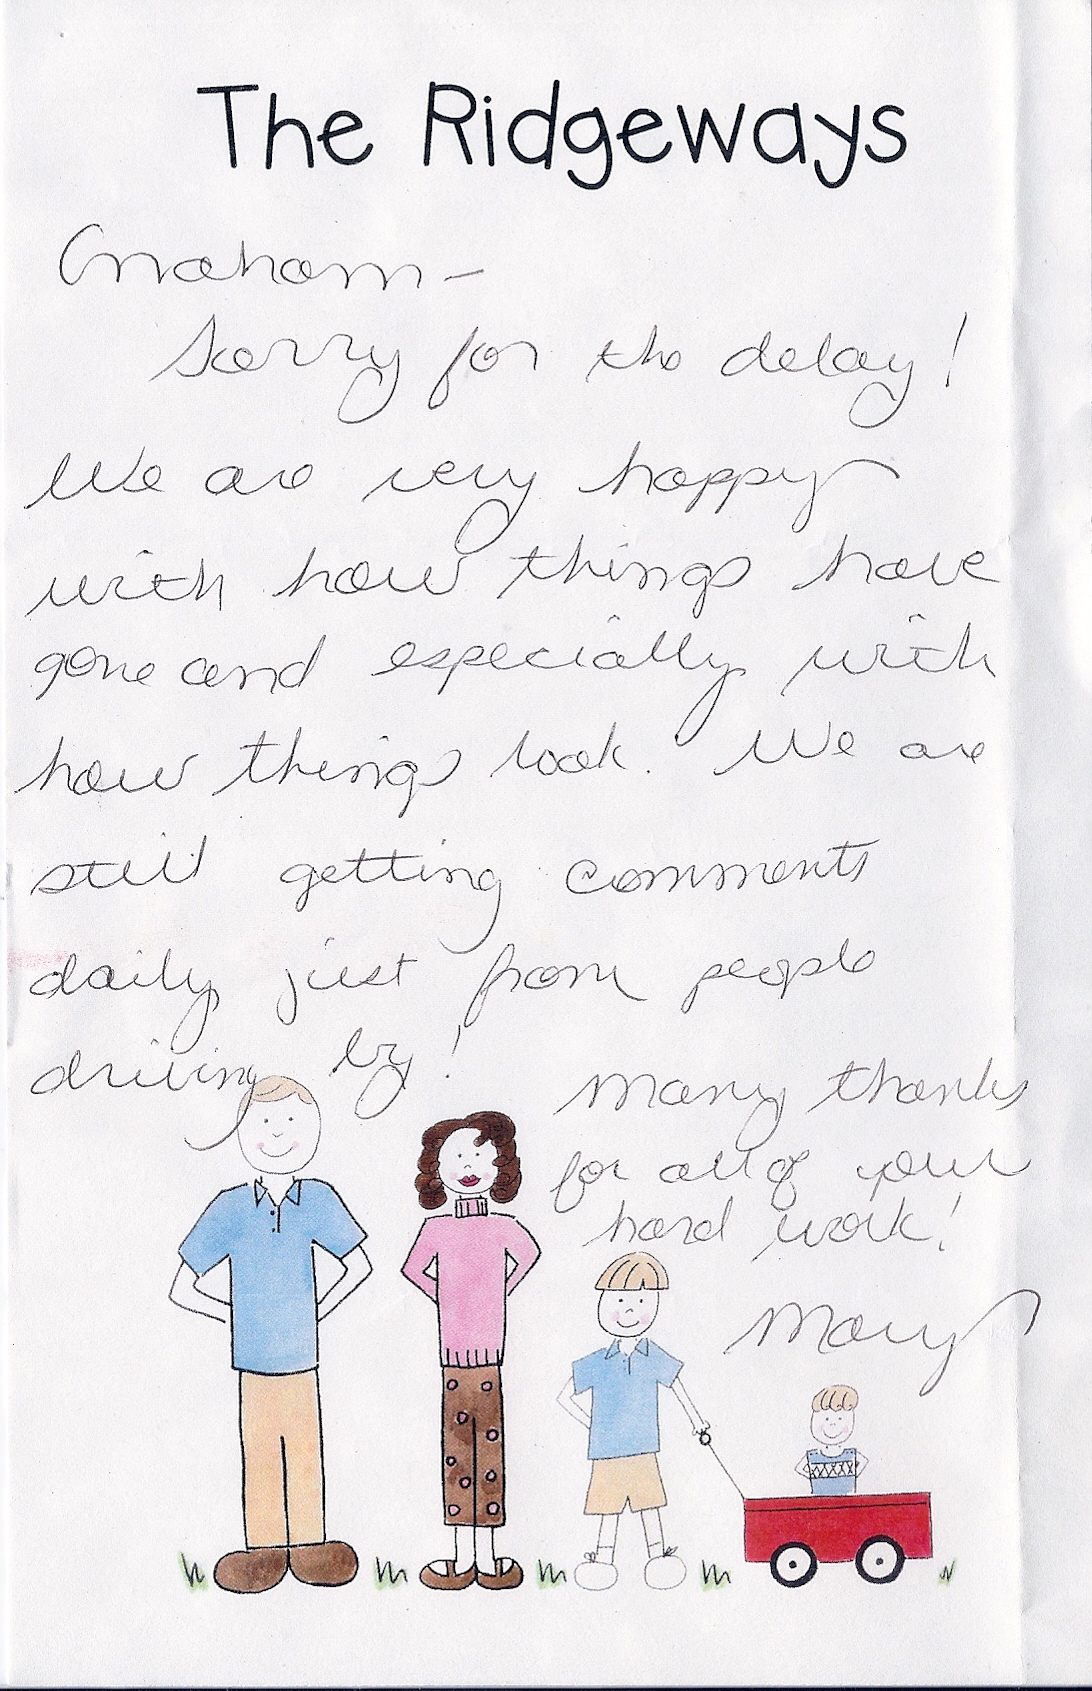 The Ridgeways
Graham -
Sorry for the delay!
We are very happy
with how things have
gone and especially with
how things look. We are
still getting comments
daily just from people
driving by!
Many thanks
for all of your
hard work!
Mary